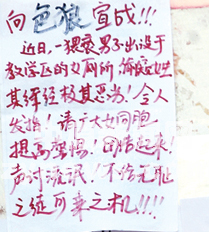 向色狼宣战!!!
近日,一猥亵男子出没于
教学区的女厕所,偷窥女生
其经极其恶劣!令人
发指!请广大女同胞
提高警惕!团结起来!
声讨流氓!不给无耻
之徒可乘之机!!!!